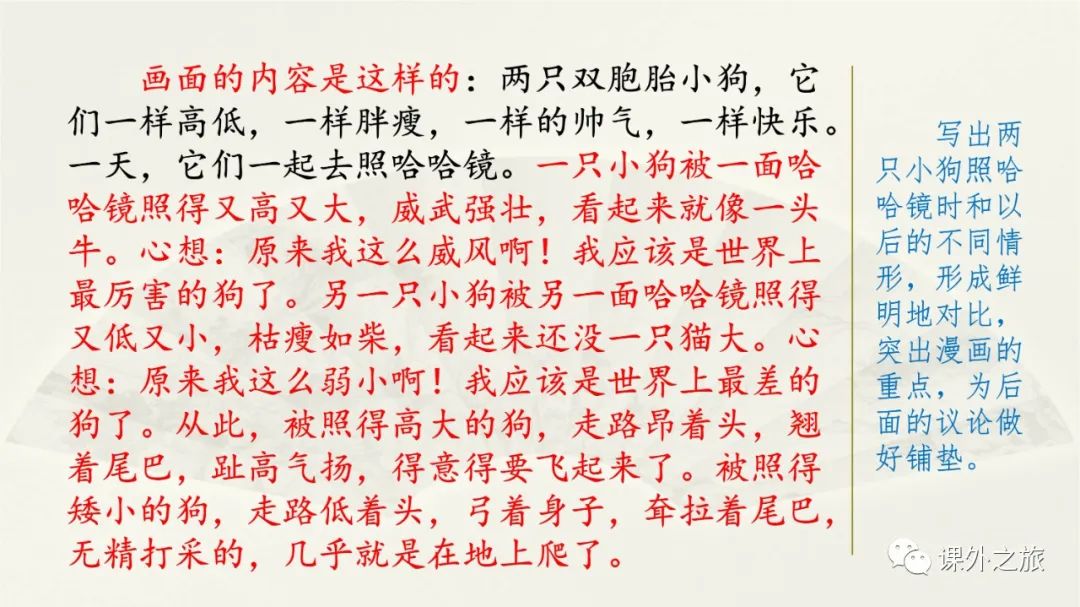 画面的内容是这样的：两只双胞胎小狗，它
们一样高低，一样胖瘦，一样的帅气，一样快乐。
一天，它们一起去照哈哈镜。一只小狗被一面哈
哈镜照得又高又大，威武强壮，看起来就像一头
牛。心想：原来我这么威风啊！我应该是世界上
最厉害的狗了。另一只小狗被另一面哈哈镜照得
又低又小，枯瘦如柴，看起来还没一只猫大。心
想：原来我这么弱小啊！我应该是世界上最差的
狗了。从此，被照得高大的狗，走路昂着头，翘
着尾巴，趾高气扬，得意得要飞起来了。被照得
矮小的狗，走路低着头，弓着身子，耷拉着尾巴，
无精打采的，几乎就是在地上爬了。
写出两
只小狗照哈
哈镜时和以
后的不同情
形，形成鲜
明地对比，
突出漫画的
重点，为后
面的议论做
好铺垫。
课外之旅